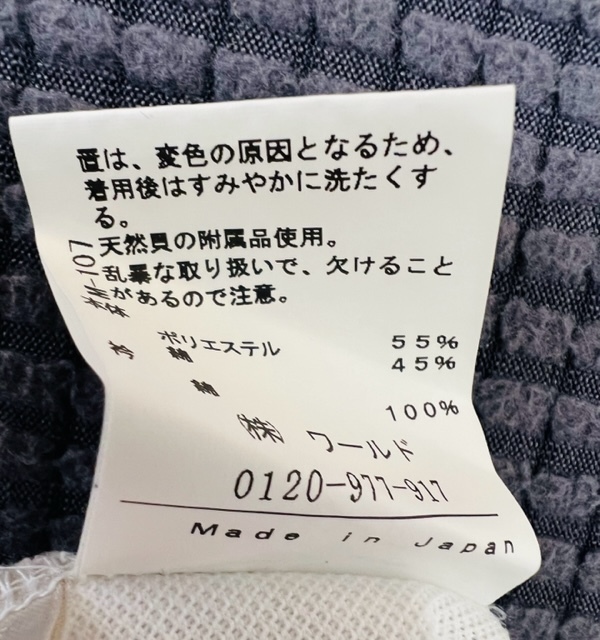 置は、変色の原因となるため、
着用後はすみやかに洗たくす
る。
天然貝の附属品使用。
乱暴な取り扱いで、欠けること
があるので注意。
-107
本体
ポリエステル 55%
綿 45%
衿
綿 100%
(株) ワールド
0120-977-917
Made in Japan